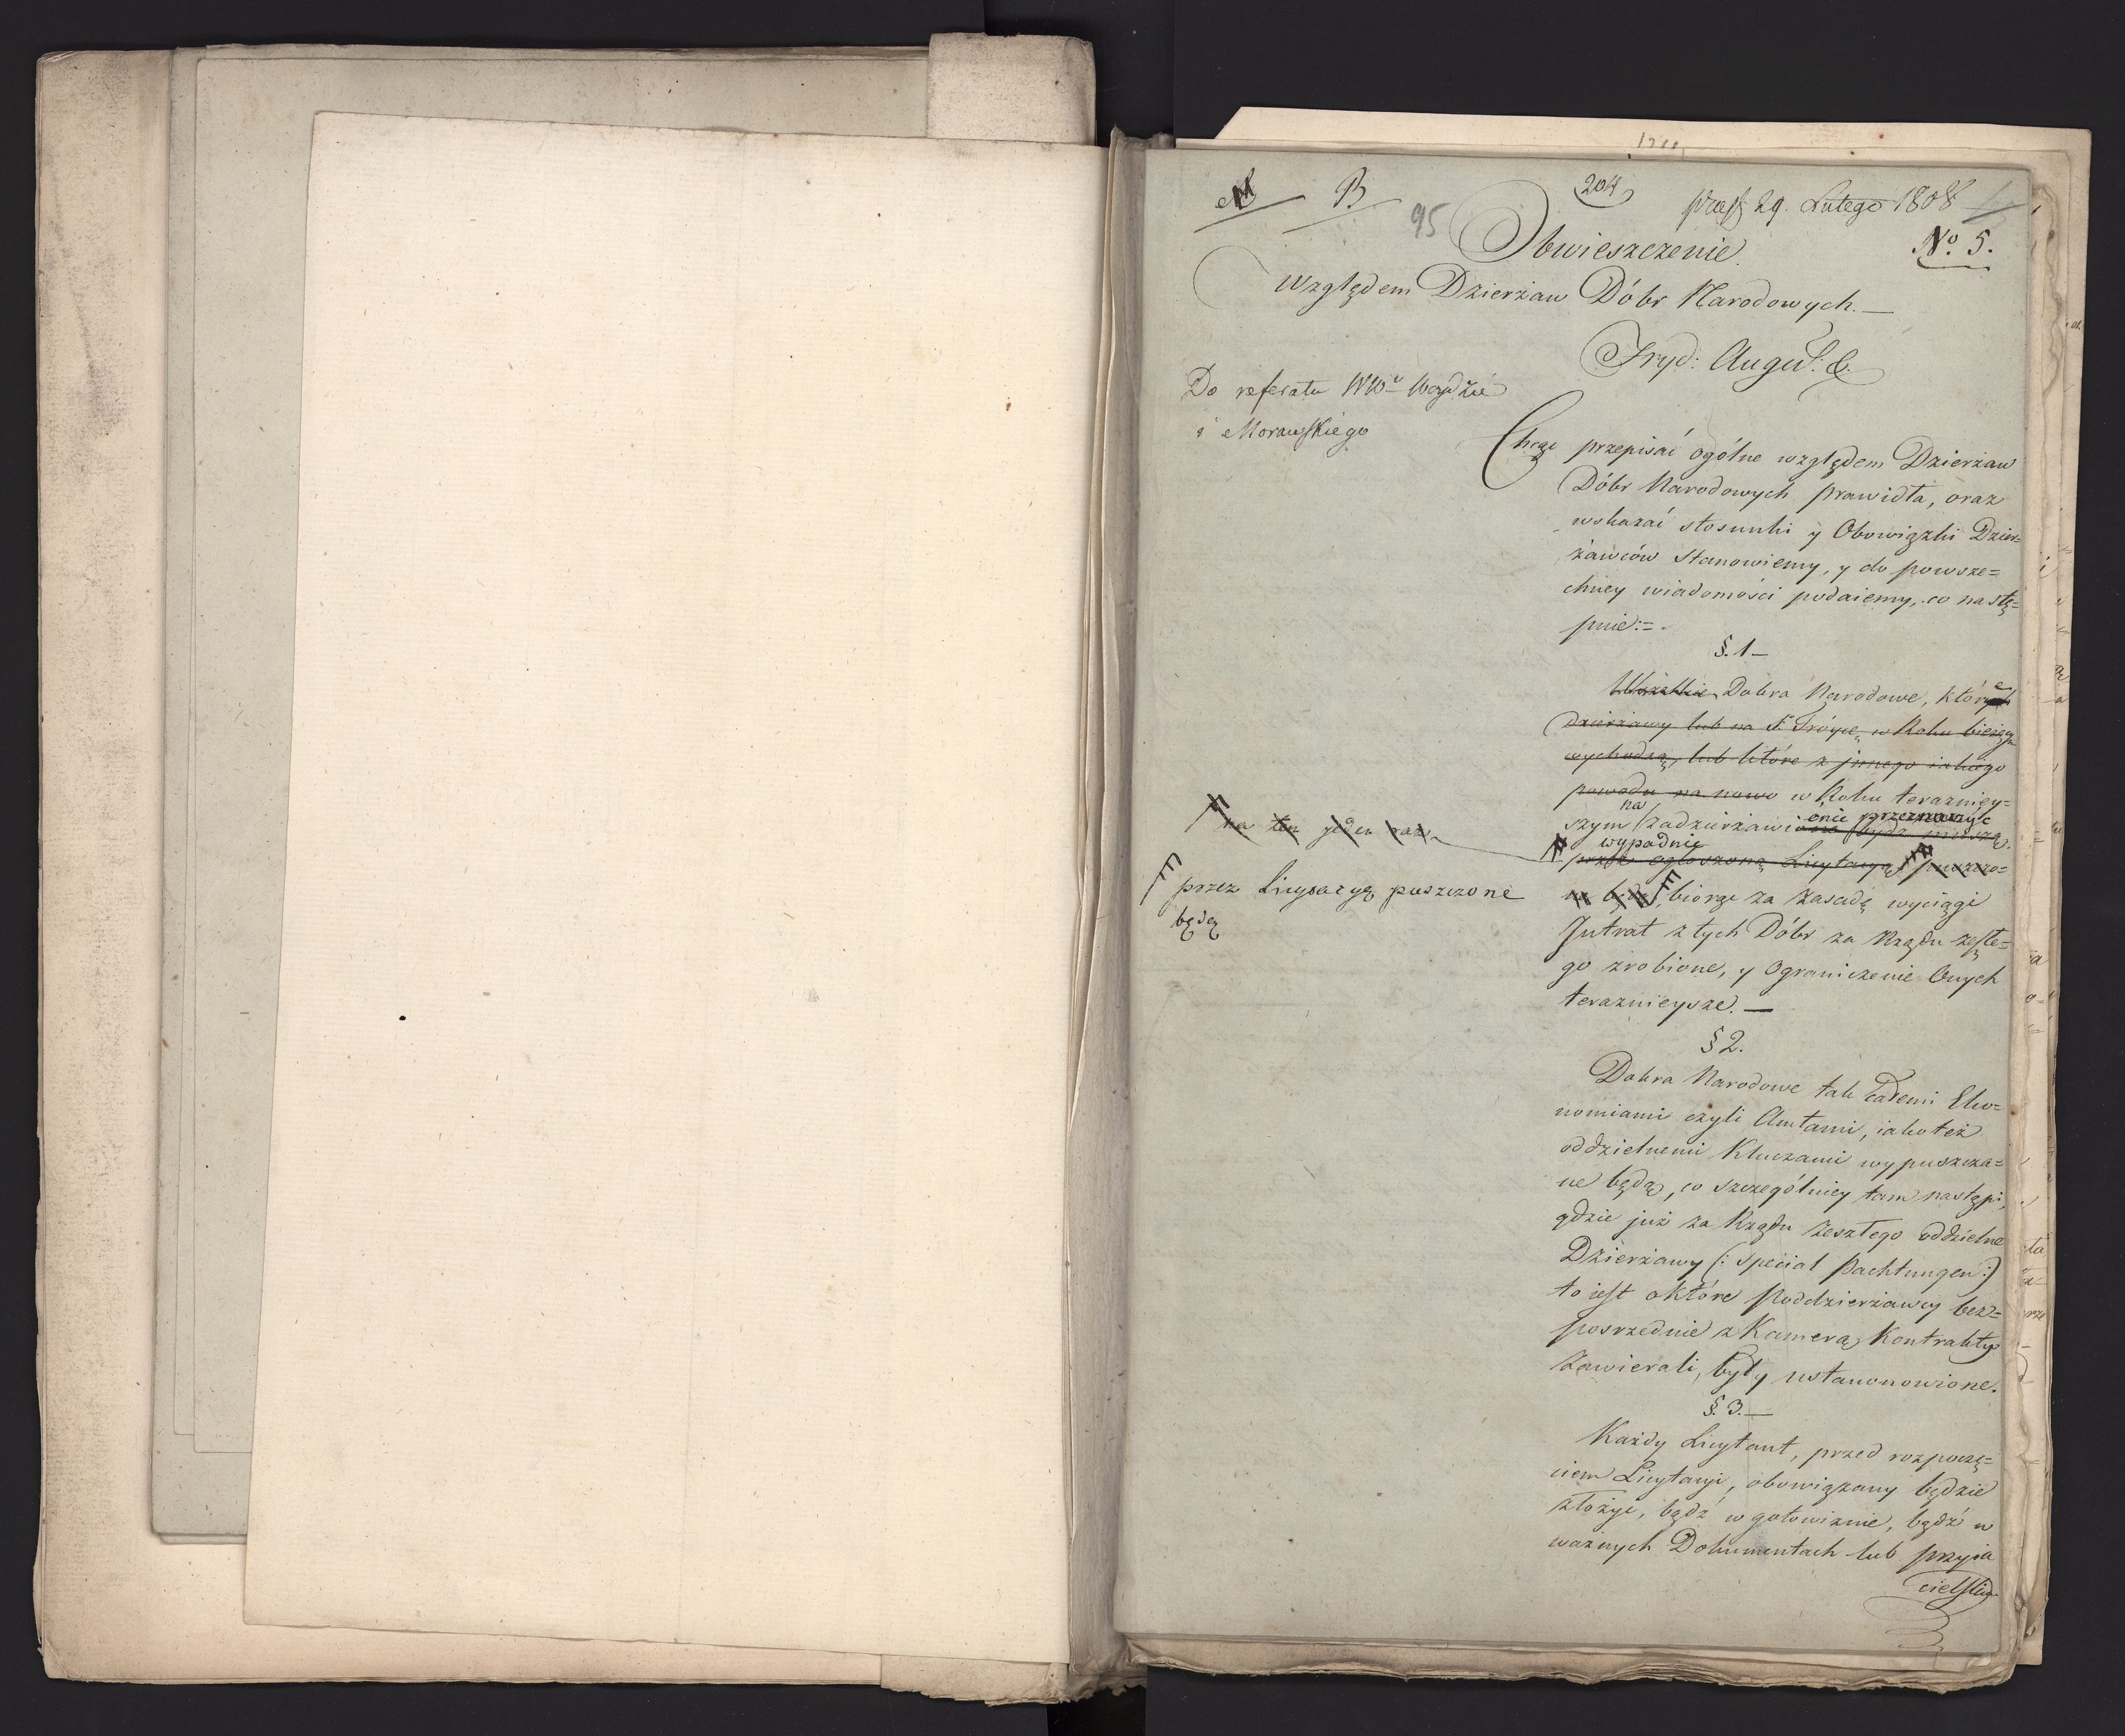 B
204
præs 29. Lutego 1808
95
Obwieszczenie
No. 5.
Względem Dzierżaw Dóbr Narodowych. —
Fryd: August: &.
Do referatu WWo
i Morawskiego
Chcąc przepisać ogólne względem Dzierżaw
Dóbr Narodowych prawidła, oraz
wskazać stosunki y Obowiązki Dzier=
żawców Stanowiemy, y do powsze=
chney wiadomości podaiemy, co nastę=
pnie:=.
§. 1 —
Wszelkie Dobra Narodowe, które
dzierżawy lub na S. Tróycę w Roku bieżącym
wychodzą, lub które z jnnego iakiego
powodu na nowo w Roku terazniey=
szym na zadzierżawienie przeznaczyć
wypadnie
przez ogłoszoną Licytacyą puszczo=
ne będą, biorąc za zasadę wyciągi
Jutrat z tych Dóbr za Rządu zeszłe=
go zrobione, y Ograniczenie Onych
teraznieysze. —
na ten jeden raz
przez Licytacyą puszczone
będą
§ 2.
Dobra Narodowe tak całemi Eko=
nomiami czyli Amtami, iako też
oddzielnemi Kluczami wypuszcza=
ne będą, co szczególniey tam nastąpi,
gdzie już za Rządu zeszłego oddzielne
Dzierżawy (: Special Pachtungen :)
to iest o które Poddzierżawcy bez=
posrzednie z Kamerą Kontrakty
zawierali, były ustanonowione.
§. 3. —
Każdy Licytant, przed rozpoczę=
ciem Licytacyi, obowiązany będzie
złożyć, bądź w gotowiznie, bądź w
ważnych Dokumentach lub przyia
cielskiey